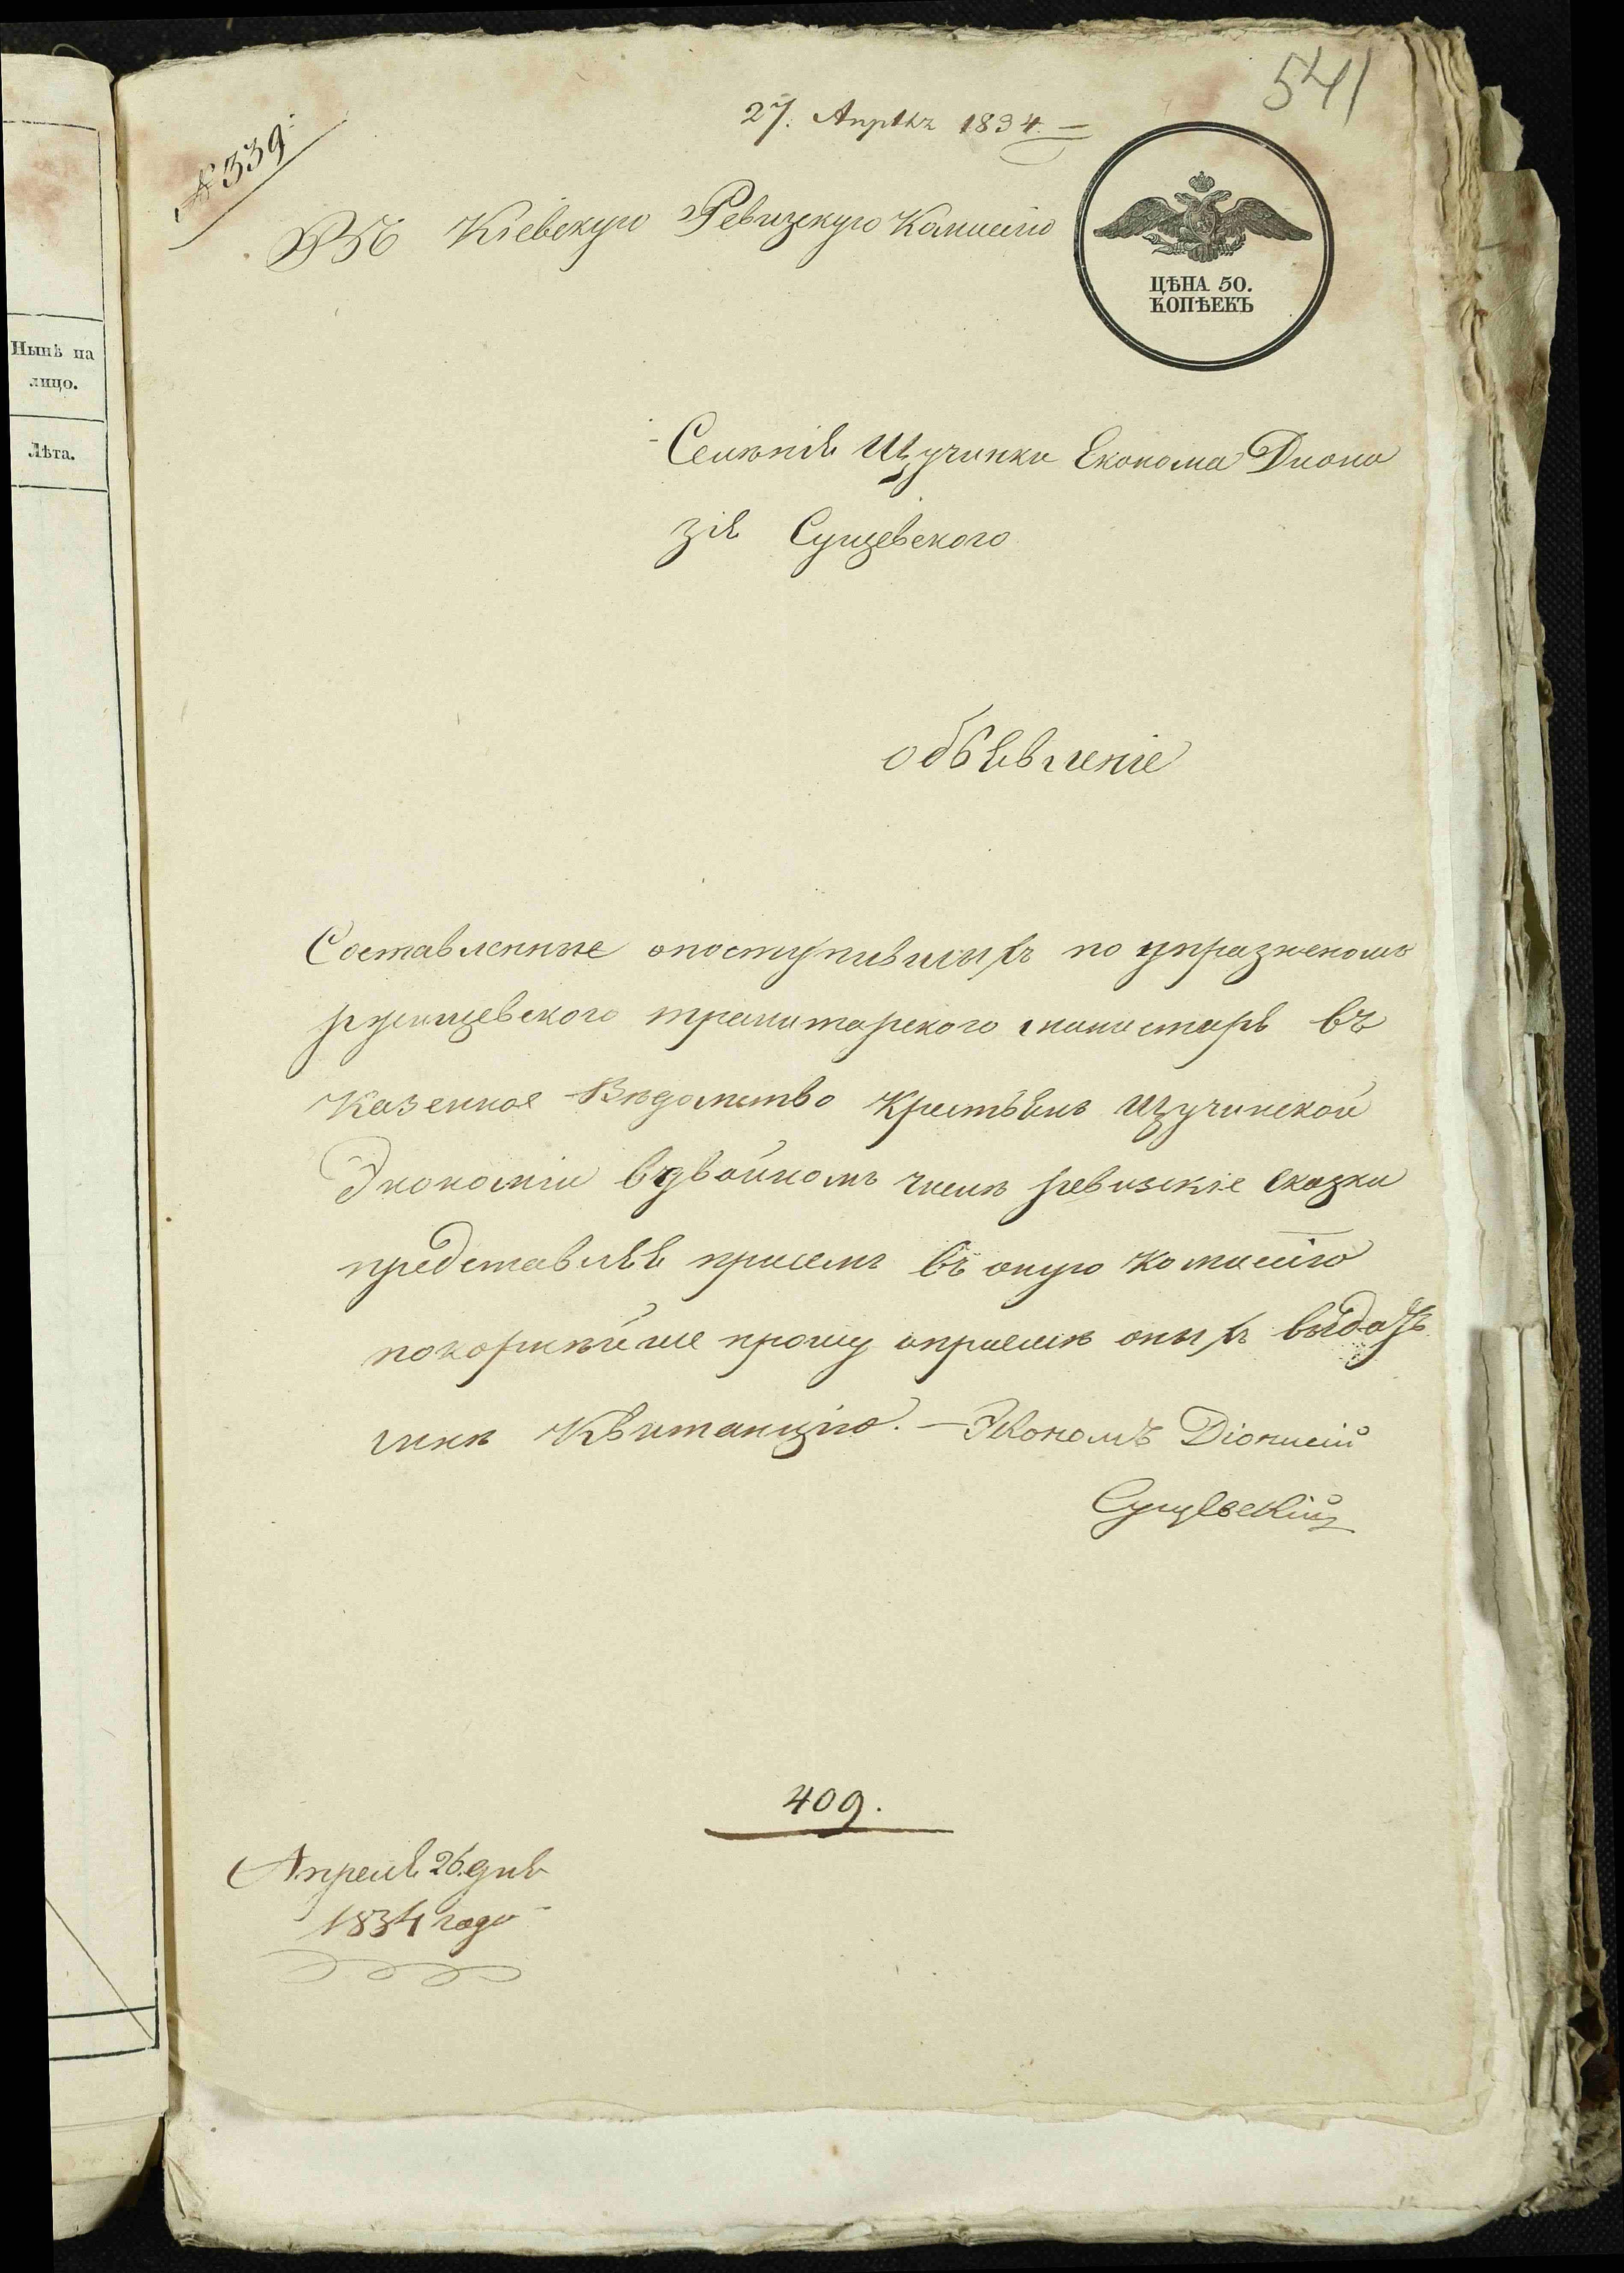 541
27. Апрѣля 1834.
№ 339
Въ Кіевскую Ревизскую Комисію
ЦѢНА 50.
КОПѢЕКЪ
Нынѣ на
лицо.
Лѣта.
Селенія Щучинки Економа Диони
зія Сущевского
объявленіе
Составленные опоступившихъ по упразненомъ
ржищевского тринитарского монастыря въ
Казенное Вѣдомство Крестьянъ Щучинской
Экономіи вдвойномъ числѣ ревизскіе сказки
представляя присемъ въ оную комисію
покорнѣйше прошу опріемѣ оныхъ выдать
мнѣ Квитанцію. — Экономъ Діонисій
Сущевскій
409.
Апреля 26 дня
1834 года